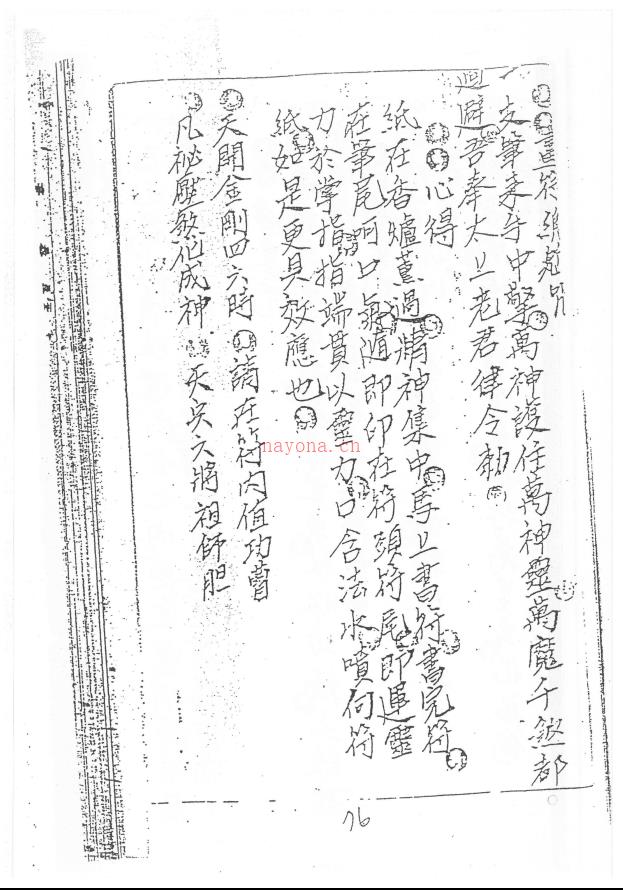 書符總
支筆來手中擎萬神護任萬神靈萬魔千煞都
迴避吾奉太上老君律令敕
心得
紙在香爐薰過精神集中馬上書符書完符
在筆尾呵口氣隨即印在符頭符尾即運靈
力於掌指指端貫以靈力口含法水噴向符
紙如是更具效應也
天開金剛四六時 請在符內值功曹
凡祕壓煞化成神 天兵六將祖師胆
nayona.cn
76